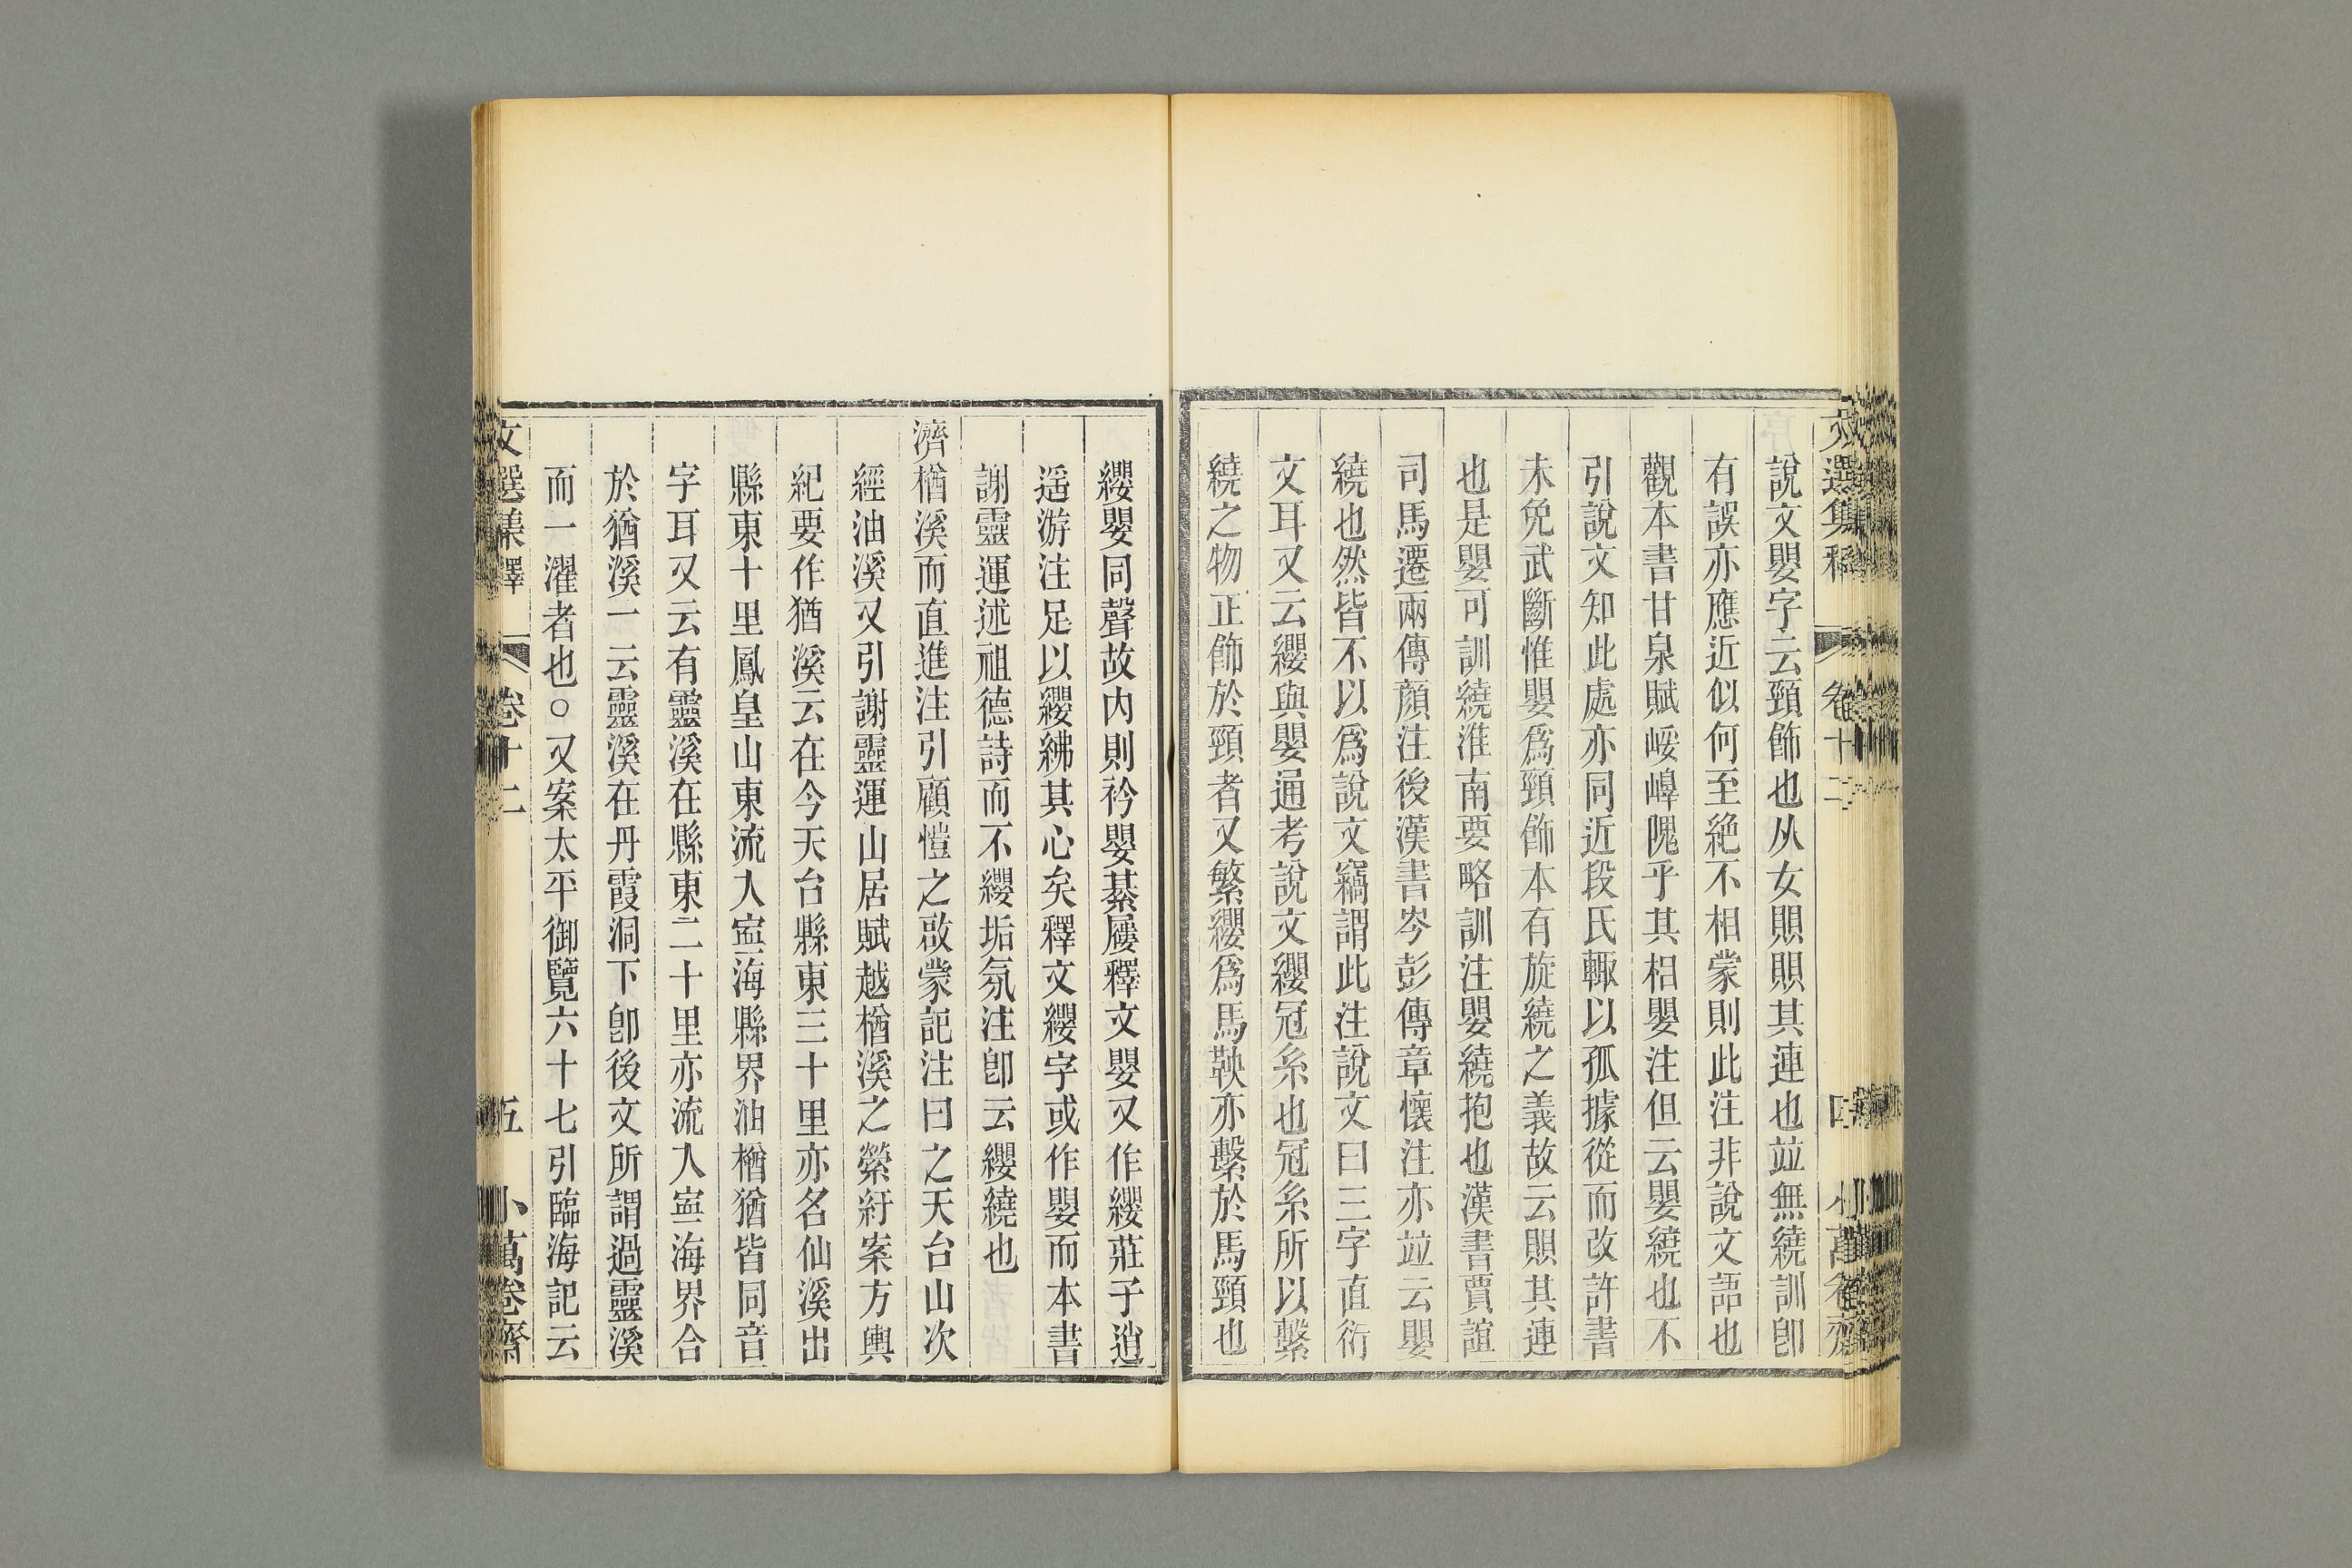 文選集釋 卷十二 四 小萬卷齋
說文嬰字云頸飾也从女賏賏其連也竝無繞訓卽
有誤亦應近似何至絕不相蒙則此注非說文語也
觀本書甘泉賦崣嶵隗乎其相嬰注但云嬰繞也不
引說文知此處亦同近段氏輒以孤據從而改許書
未免武斷惟嬰爲頸飾本有旋繞之義故云賏其連
也是嬰可訓繞淮南要略訓注嬰繞抱也漢書賈誼
司馬遷兩傳顏注後漢書岑彭傳章懷注亦竝云嬰
繞也然皆不以爲說文竊謂此注說文曰三字直衍
文耳又云纓與嬰通考說文纓冠糸也冠糸所以繫
繞之物正飾於頸者又繁纓爲馬鞅亦繫於馬頸也
纓嬰同聲故內則衿嬰綦屨釋文嬰又作纓莊子逍
遥游注足以纓紼其心矣釋文纓字或作嬰而本書
謝靈運述祖德詩而不纓垢氛注卽云纓繞也
濟楢溪而直進注引顧愷之啟蒙記注曰之天台山次
經油溪又引謝靈運山居賦越楢溪之縈紆案方輿
紀要作猶溪云在今天台縣東三十里亦名仙溪出
縣東十里鳳皇山東流入寧海縣界油楢猶皆同音
字耳又云有靈溪在縣東二十里亦流入寧海界合
於猶溪一云靈溪在丹霞洞下卽後文所謂過靈溪
而一濯者也○又案太平御覽六十七引臨海記云
文選集釋 卷十二 五 小萬卷齋